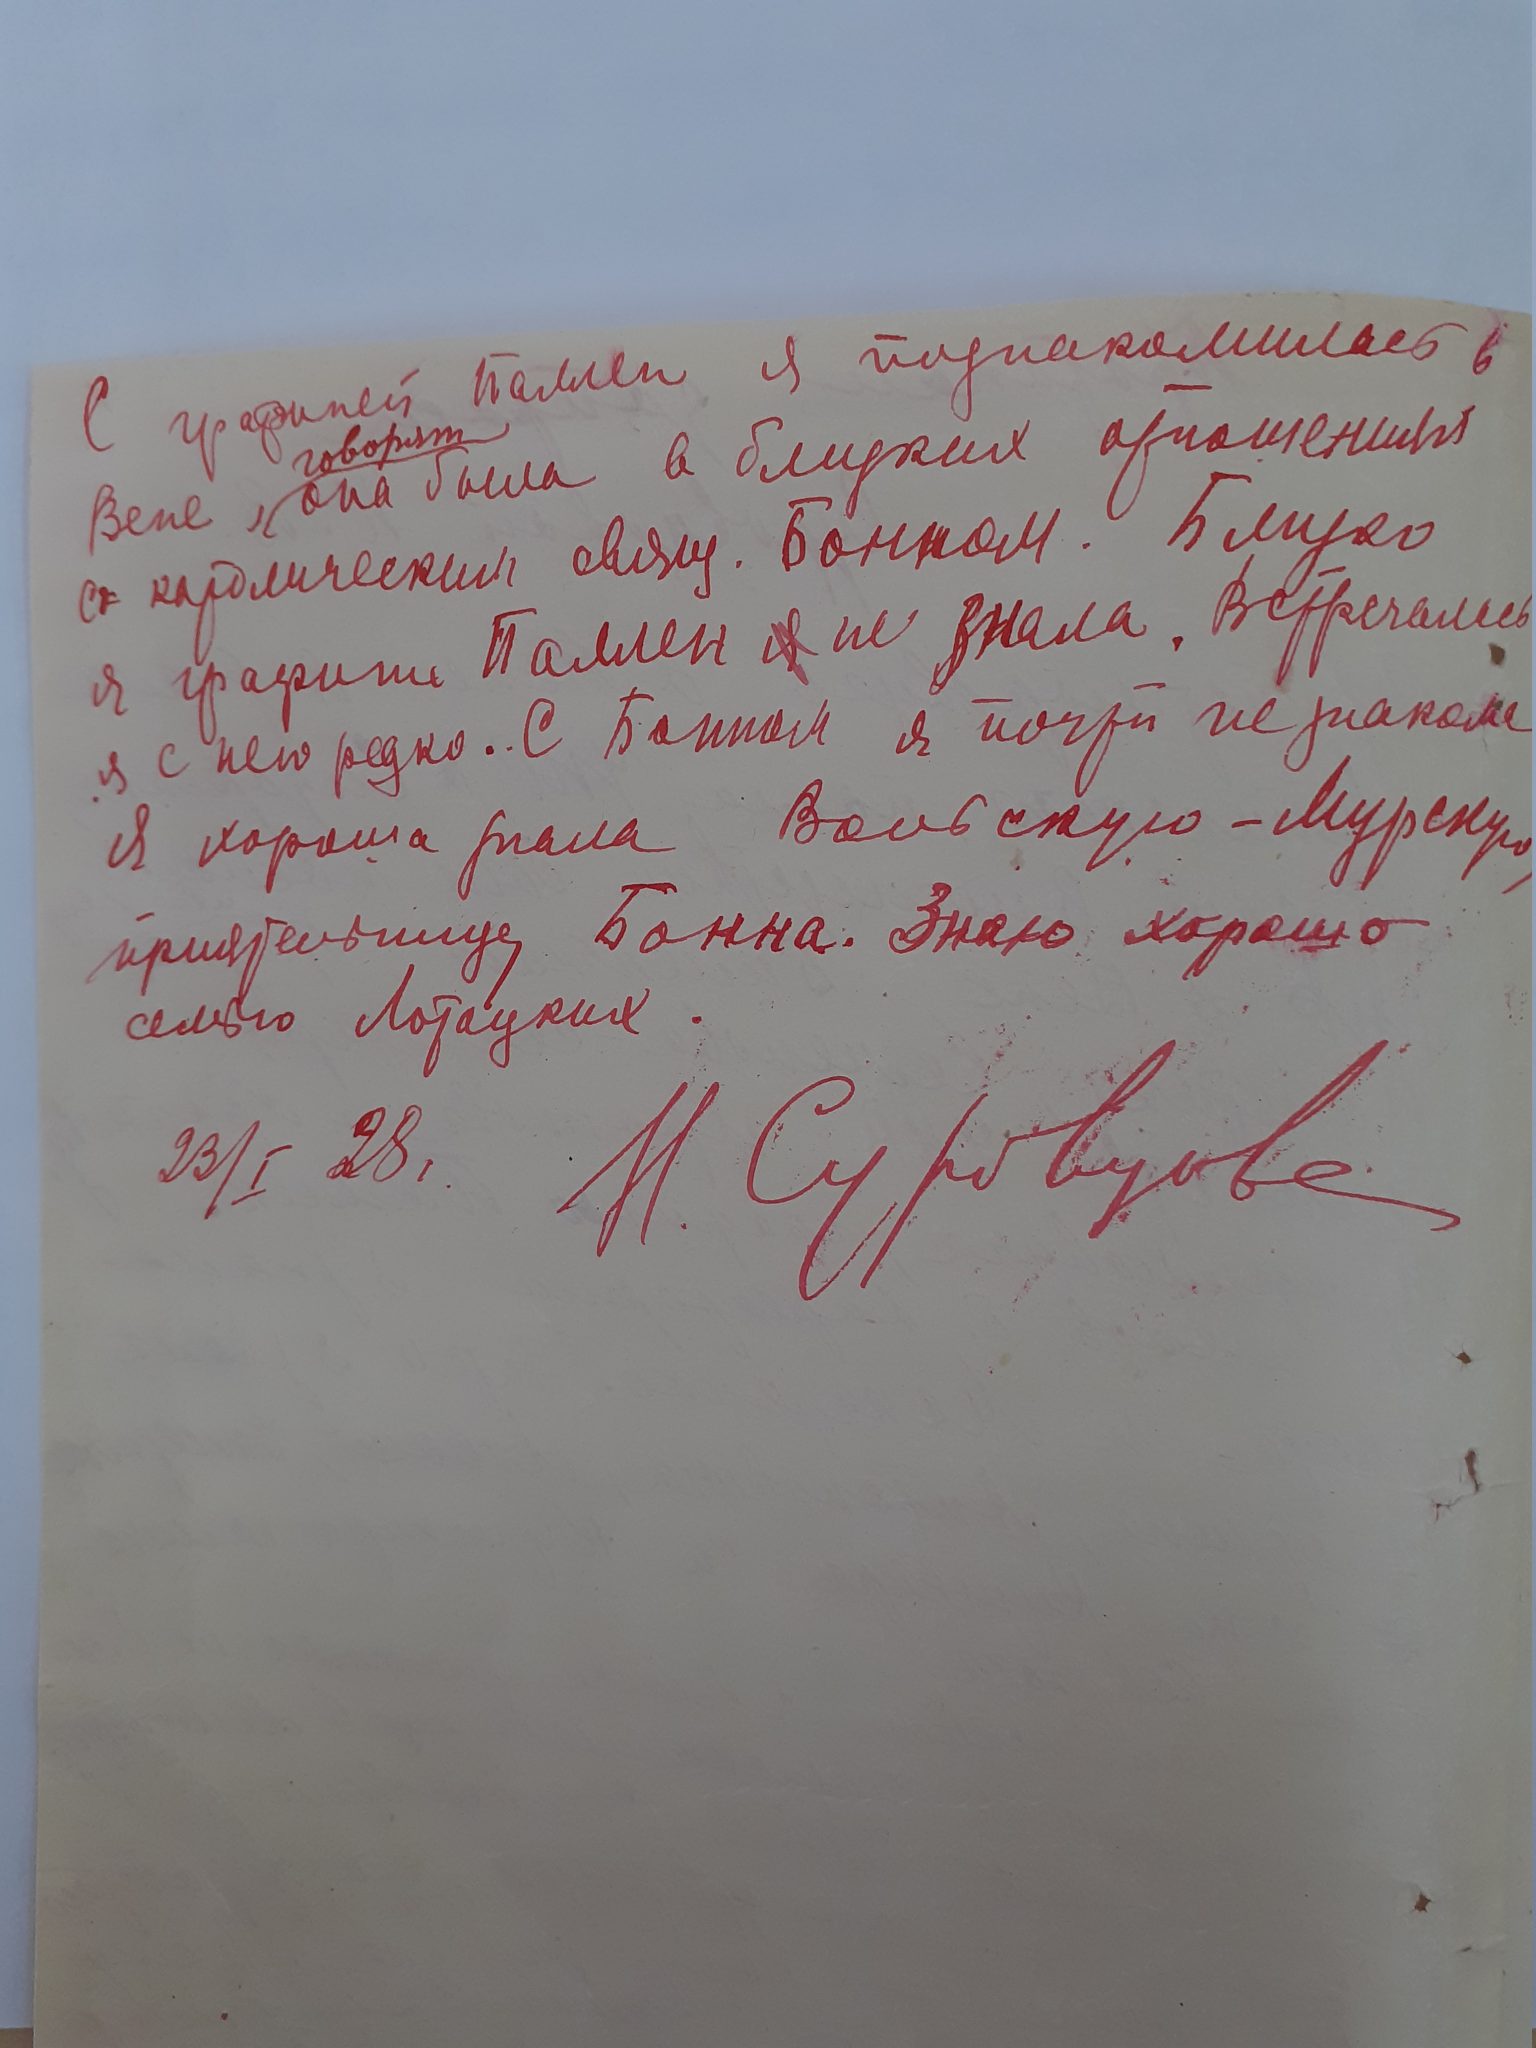 С графиней Паллен я познакомилась в
говорят
Вене, она была в близких отношениях
с католическим свящ. Бонном. Близко
я графини Паллен я не знала. Встречалась
я с нею редко. С Бонном я почти не знакома
Я хорошо знала Вольскую-Мурскую,
приятельницу Бонна. Знаю хорошо
семью Лотоцких.
23/I 28 г. Н. Суровцова